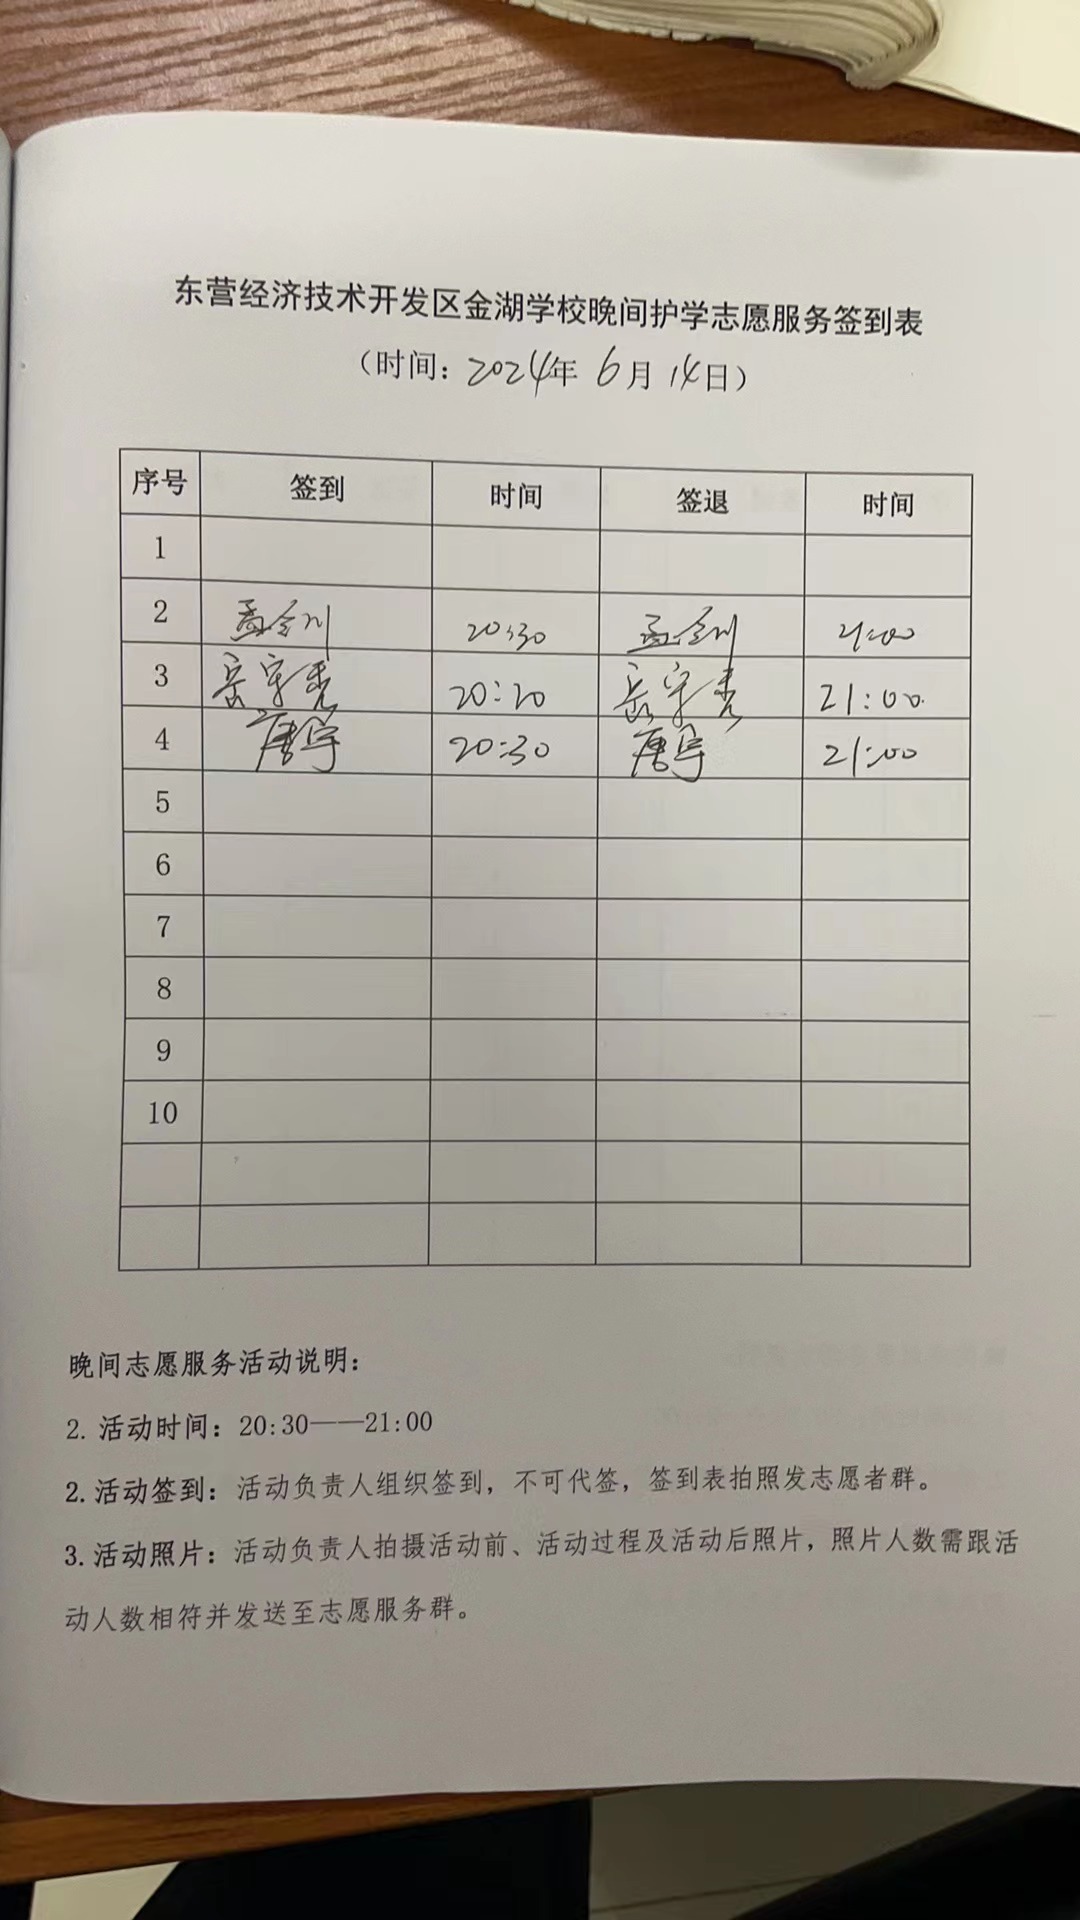 东营经济技术开发区金湖学校晚间护学志愿服务签到表
（时间：2024年 6月 14日）
序号 签到 时间 签退 时间
1
2 孟令川 20:30 孟令川 21:00
3 20:20 21:00
4 唐宇 20:30 唐宇 21:00
5
6
7
8
9
10
晚间志愿服务活动说明：
2. 活动时间：20:30——21:00
2. 活动签到：活动负责人组织签到，不可代签，签到表拍照发志愿者群。
3. 活动照片：活动负责人拍摄活动前、活动过程及活动后照片，照片人数需跟活
动人数相符并发送至志愿服务群。